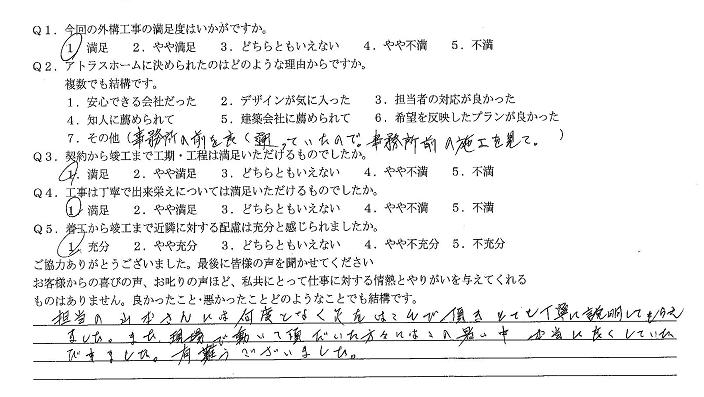 Q1．今回の外構工事の満足度はいかがですか。
1．満足　2．やや満足　3．どちらともいえない　4．やや不満　5．不満
Q2．アトラスホームに決められたのはどのような理由からですか。
複数でも結構です。
1．安心できる会社だった　2．デザインが気に入った　3．担当者の対応が良かった
4．知人に薦められて　5．建築会社に薦められて　6．希望を反映したプランが良かった
7．その他（事務所の前を良く通っていたので。事務所前の施工を見て。）
Q3．契約から竣工まで工期・工程は満足いただけるものでしたか。
1．満足　2．やや満足　3．どちらともいえない　4．やや不満　5．不満
Q4．工事は丁寧で出来栄えについては満足いただけるものでしたか。
1．満足　2．やや満足　3．どちらともいえない　4．やや不満　5．不満
Q5．着工から竣工まで近隣に対する配慮は充分と感じられましたか。
1．充分　2．やや充分　3．どちらともいえない　4．やや不充分　5．不充分
ご協力ありがとうございました。最後に皆様の声を聞かせてください
お客様からの喜びの声、お叱りの声ほど、私共にとって仕事に対する情熱とやりがいを与えてくれる
ものはありません。良かったこと・悪かったことどのようなことでも結構です。
担当の山本さんには何度となく足をはこんで頂きとても丁寧に説明してもらえ
ました。また、現場で働いて頂だいた方々にはこの暑い中本当に良くしていた
だきました。有難うございました。